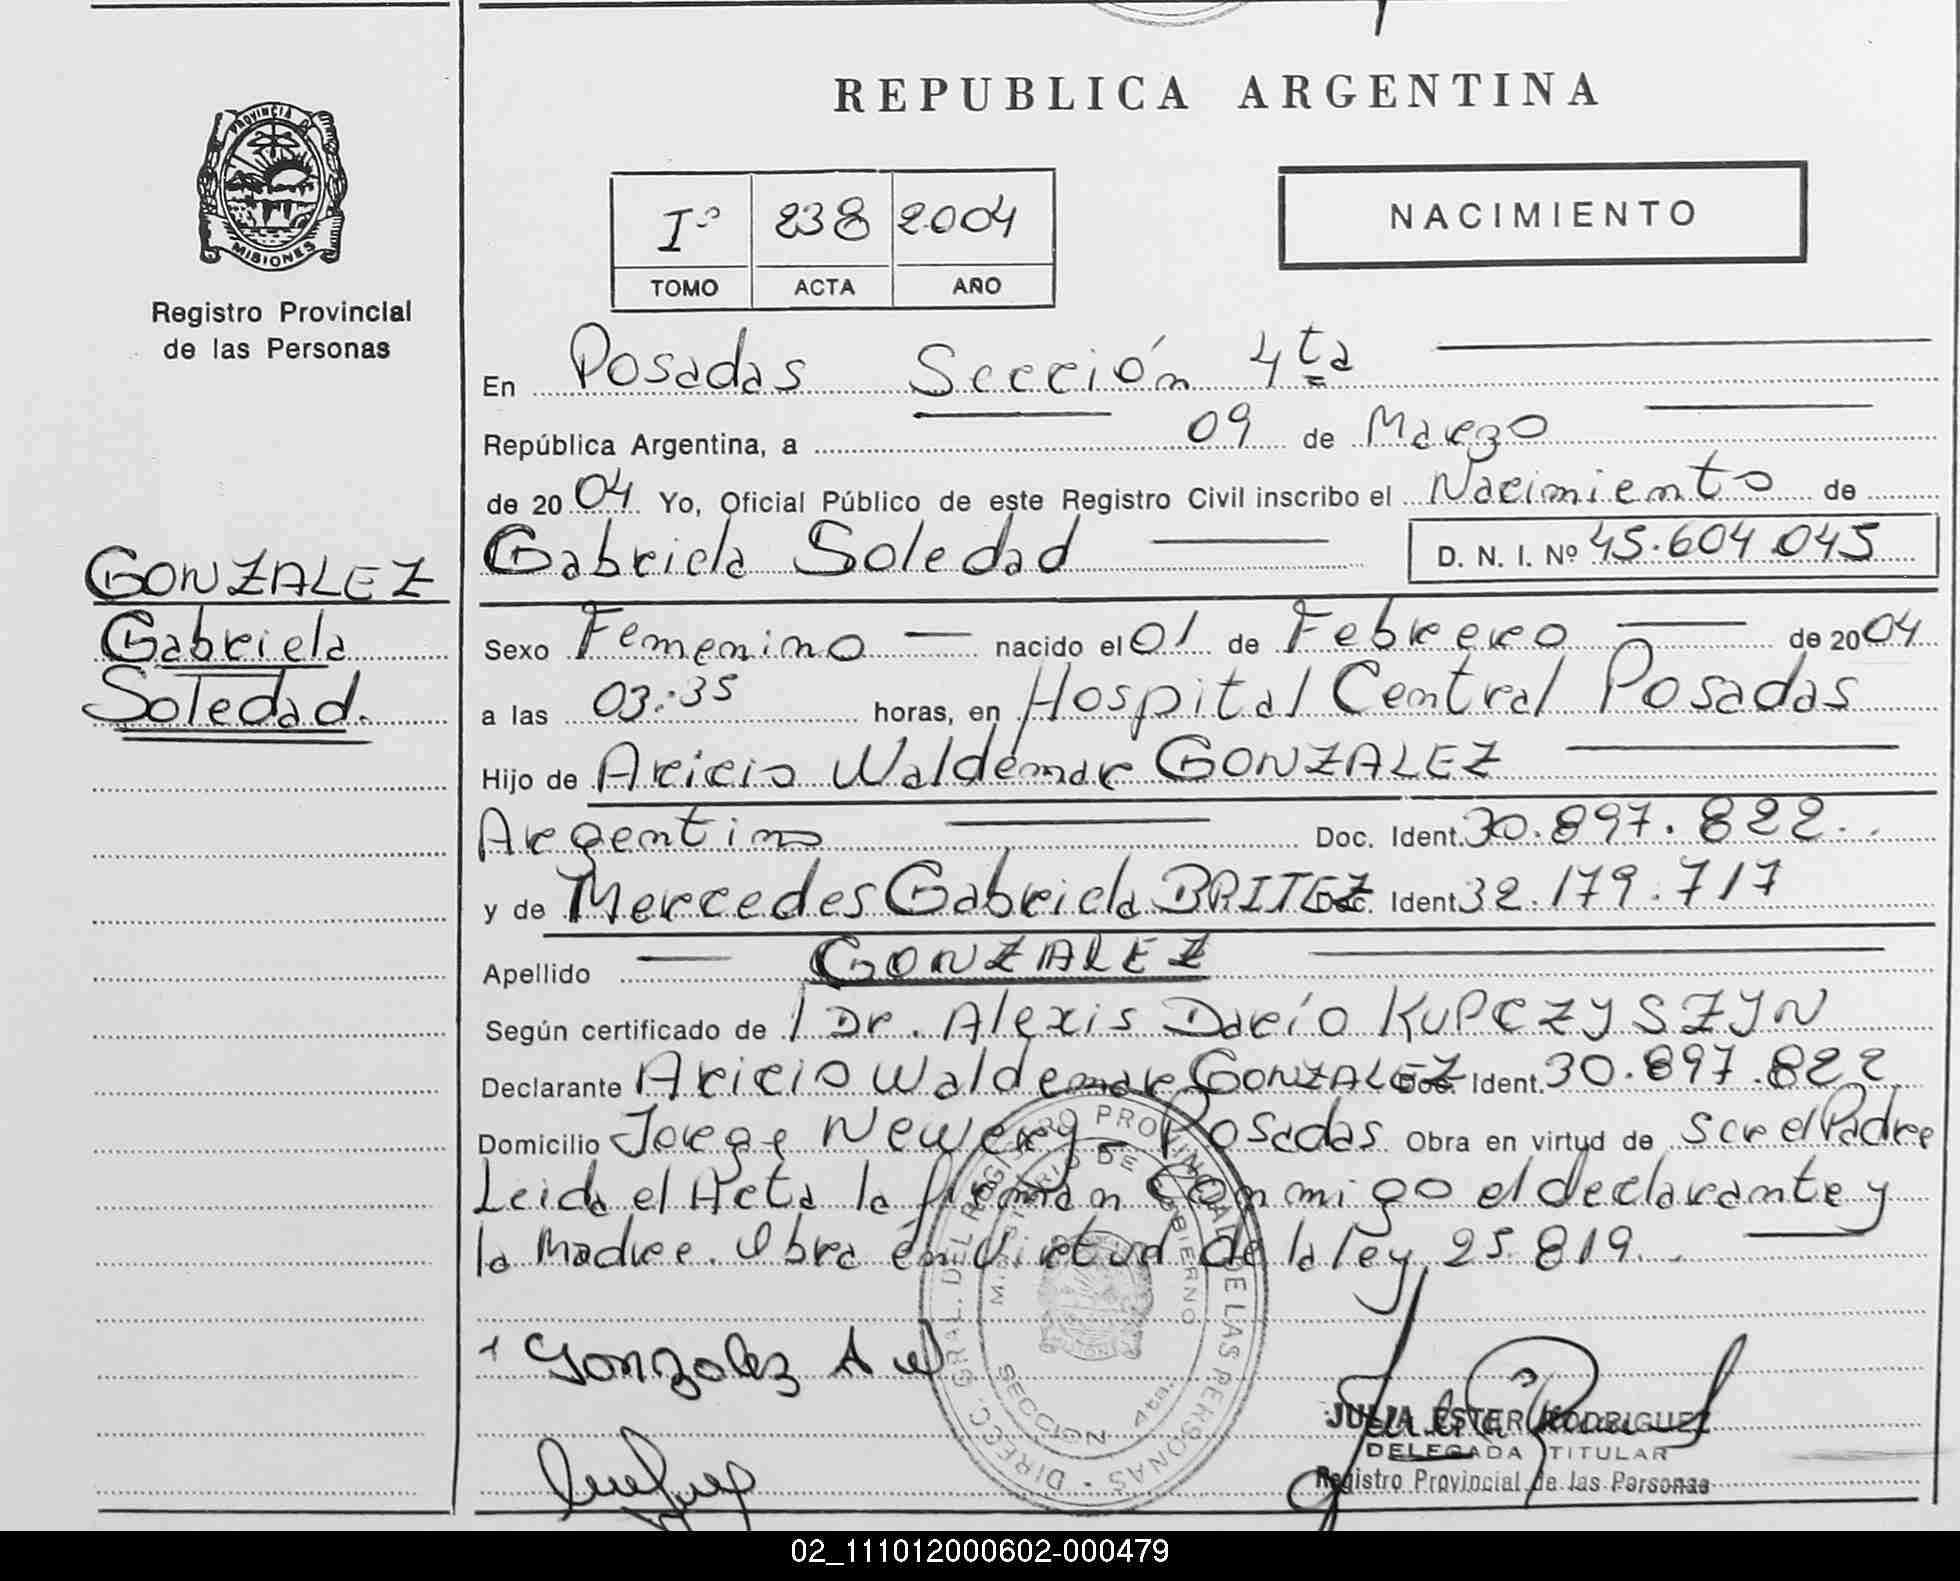 REPUBLICA ARGENTINA
PROVINCIA DE
MISIONES
Registro Provincial
de las Personas
Iº 238 2004
TOMO ACTA AÑO
NACIMIENTO
En Posadas Sección 4ta
República Argentina, a 09 de Marzo
de 2004 Yo, Oficial Público de este Registro Civil inscribo el Nacimiento de
Gabriela Soledad D. N. I. Nº 45.604.045
GONZALEZ
Gabriela
Soledad.
Sexo Femenino nacido el 01 de Febrero de 2004
a las 03:35 horas, en Hospital Central Posadas
Hijo de Aricio Waldemar GONZALEZ
Argentino Doc. Ident. 30.897.822.
y de Mercedes Gabriela BRITEZ Doc. Ident 32.179.717
Apellido GONZALEZ
Según certificado de Dr. Alexis Darío KUPCZYSZYN
Declarante Aricio Waldemar GONZALEZ Doc. Ident. 30.897.822
Domicilio Jorge Newery - Posadas Obra en virtud de Ser el Padre
Leida el Acta la firman conmigo el declarante y
la Madre. Obra en Virtud de la ley 25.819.
DIRECC. GRAL. DEL REGISTRO PROVINCIAL DE LAS PERSONAS
MINISTERIO DE GOBIERNO
SECCION 4ta.
Gonzalez A W
JULIA ESTER RODRIGUEZ
DELEGADA TITULAR
Registro Provincial de las Personas
02_111012000602-000479